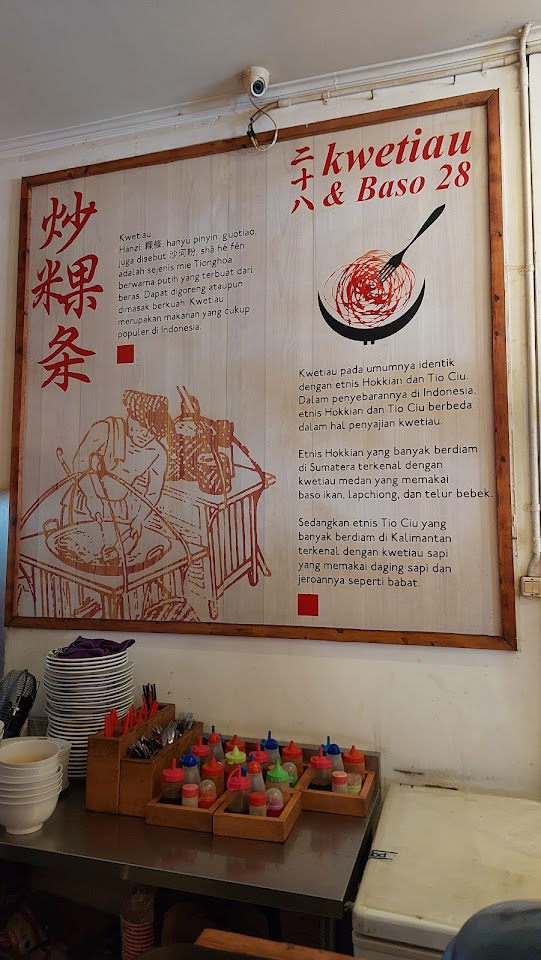 炒粿条
Kwetiau
Hanzi: 粿條, hanyu pinyin, guotiao,
juga disebut 沙河粉, shā hé fěn
adalah sejenis mie Tionghoa
berwarna putih yang terbuat dari
beras. Dapat digoreng ataupun
dimasak berkuah. Kwetiau
merupakan makanan yang cukup
populer di Indonesia.
二十八
kwetiau
& Baso 28
Kwetiau pada umumnya identik
dengan etnis Hokkian dan Tio Ciu.
Dalam penyebarannya di Indonesia,
etnis Hokkian dan Tio Ciu berbeda
dalam hal penyajian kwetiau.
Etnis Hokkian yang banyak berdiam
di Sumatera terkenal dengan
kwetiau medan yang memakai
baso ikan, lapchiong, dan telur bebek.
Sedangkan etnis Tio Ciu yang
banyak berdiam di Kalimantan
terkenal dengan kwetiau sapi
yang memakai daging sapi dan
jeroannya seperti babat.